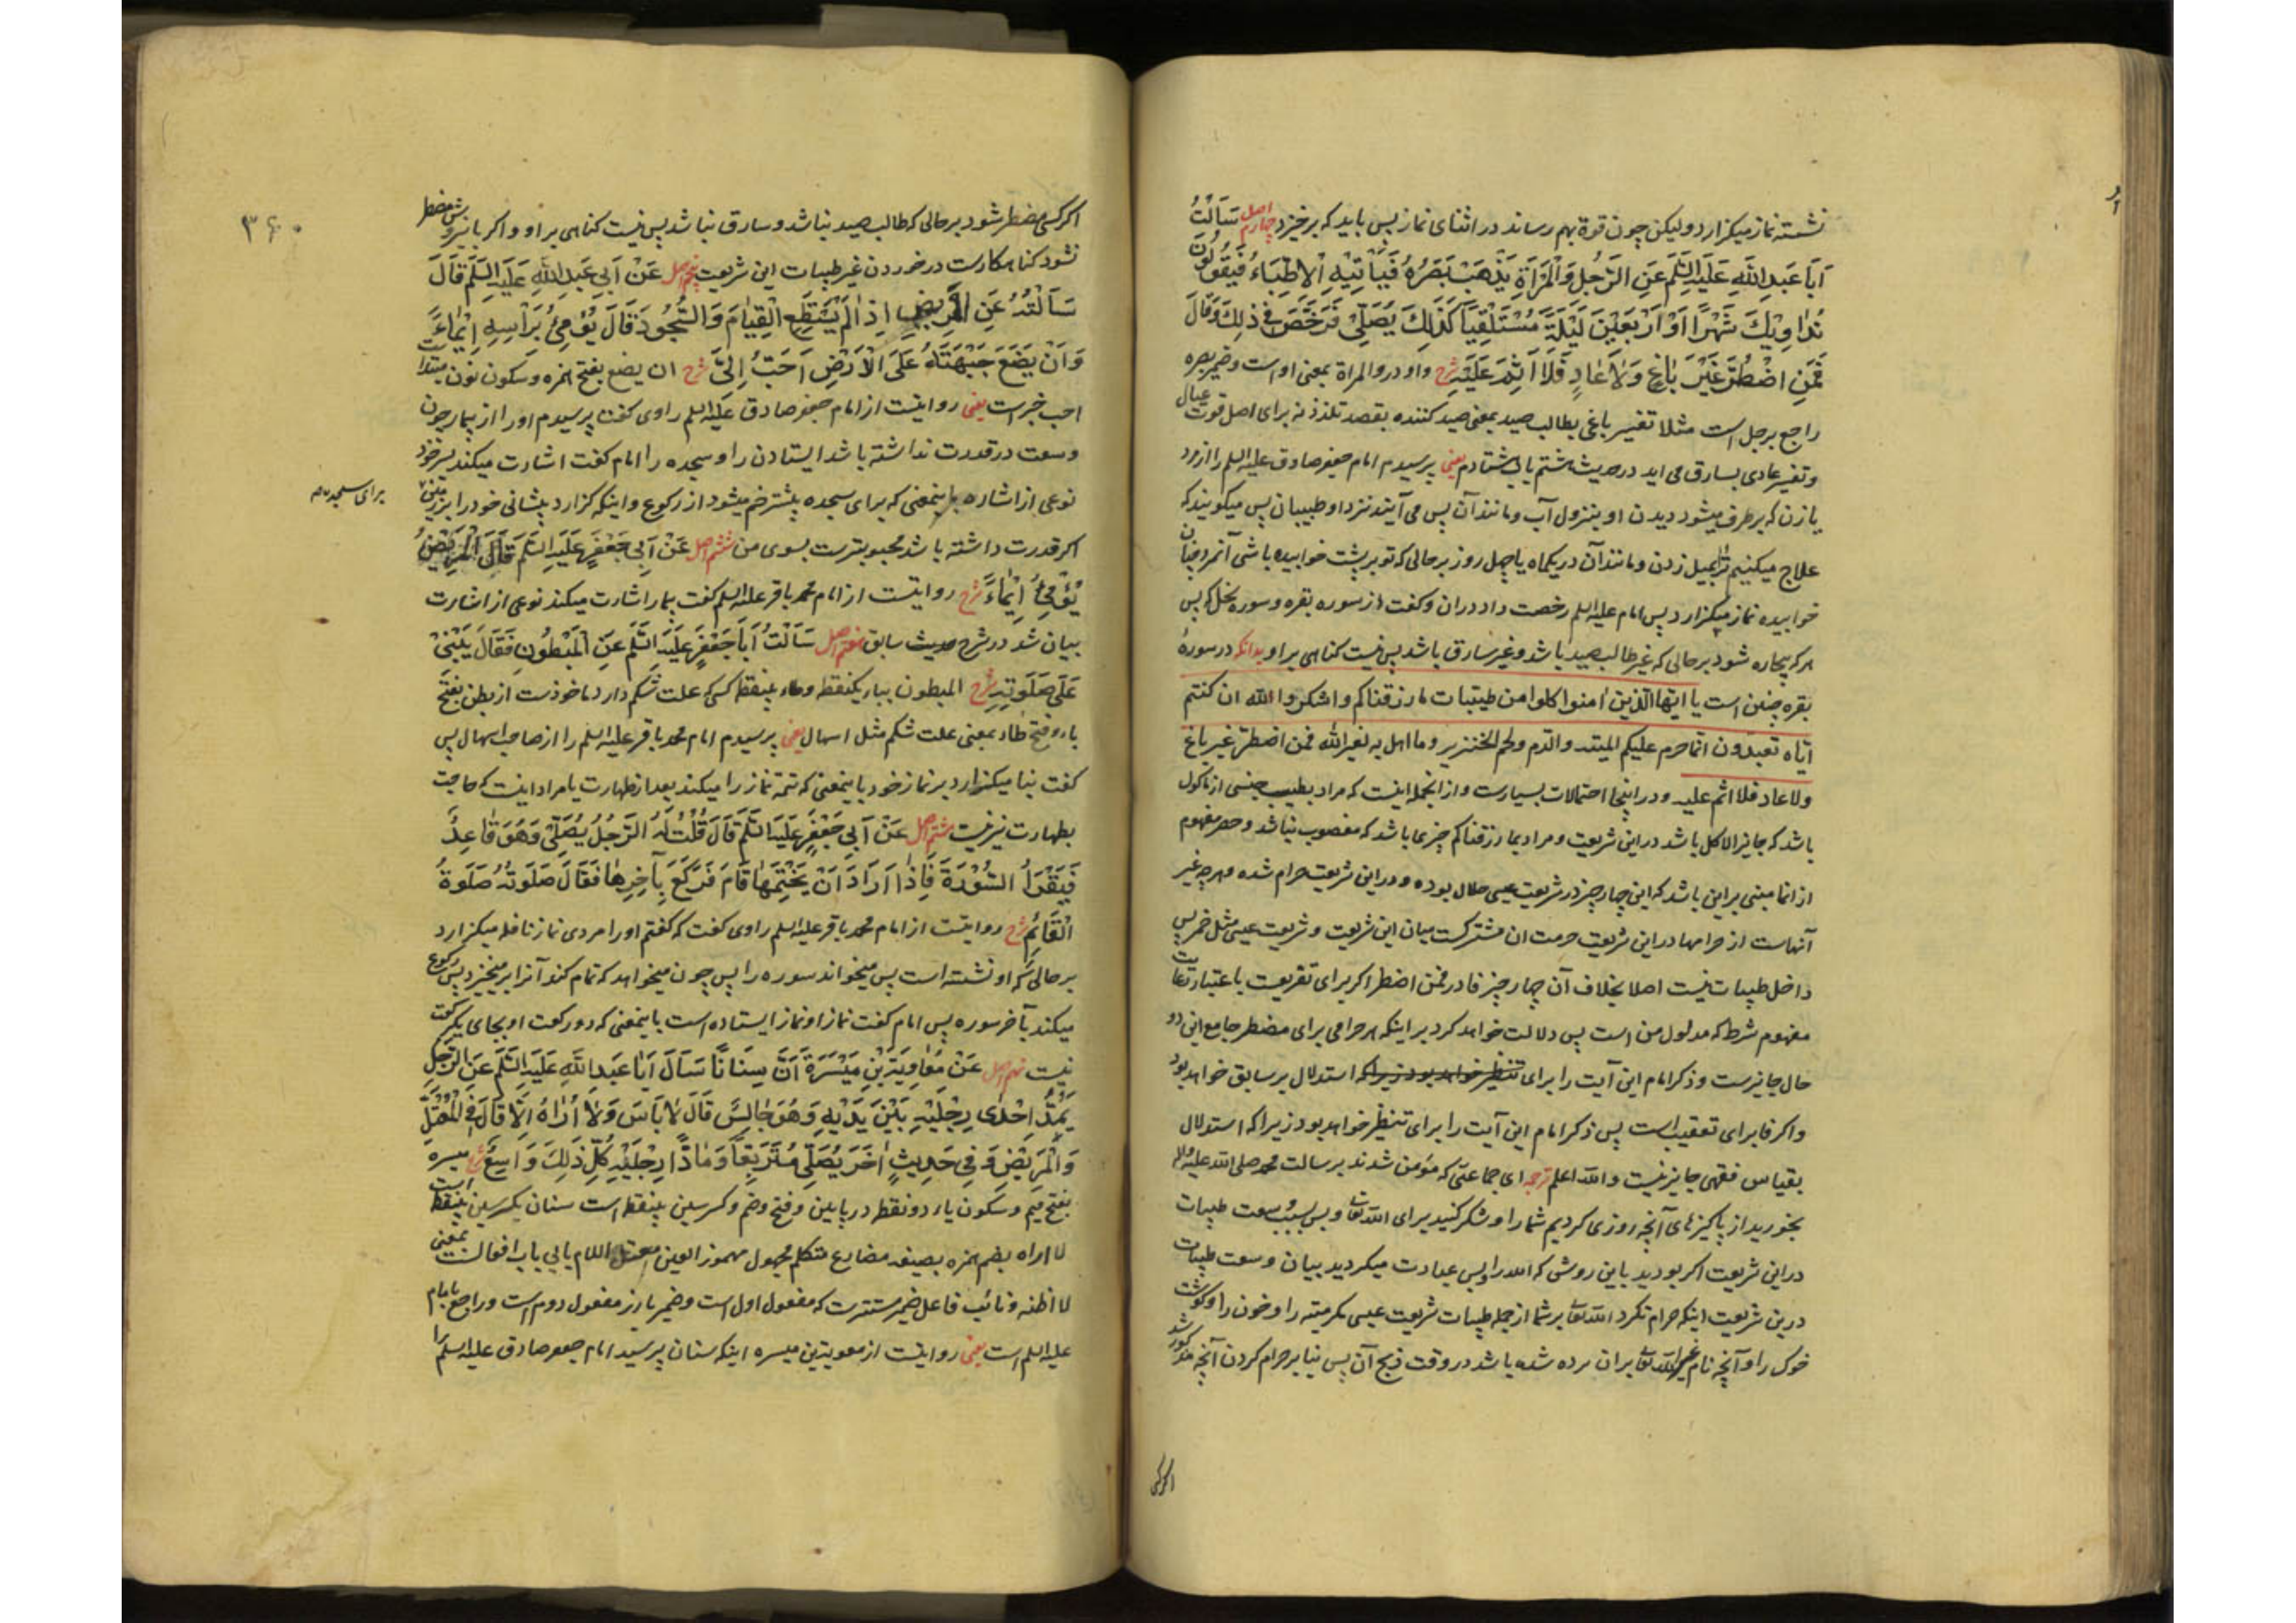 نشسته نماز میکزارد ولیکن چون قوة بهم رساند در اثنای نماز پس باید که برخیزد اصل چهارم سَاَلْتُ
اَبَا عَبدِ اللّٰهِ عَلَيْهِ السَّلَمُ عَنِ الرَّجُلِ وَالْمَرْاَةِ يَذْهَبُ بَصَرُهُ فَيَأْتِيْهِ الْاَطِبَّاءُ فَيَقُوْلُوْنَ
نُدَاوِيْكَ شَهْرًا اَوْ اَرْبَعِيْنَ لَيْلَةً مُسْتَلْقِيًا كَذٰلِكَ يُصَلِّيْ فَرَخَّصَ فِيْ ذٰلِكَ وَقَالَ
فَمَنِ اضْطُرَّ غَيْرَ بَاغٍ وَلَا عَادٍ فَلَا اِثْمَ عَلَيْهِ شرح واو در والمراة بمعنی او است وضمیر بصره
راجع برجل است مثلا تفسیر باغی بطالب صید بمعنی صید کننده بقصد تلذذ نه برای اصل قوت عیال
وتفسیر عادی بسارق می اید در حدیث هشتم باب هشتادم یعنی پرسیدم امام جعفر صادق علیه السلم را از مرد
یا زن که برطرف میشود دیدن او بنزول آب و مانند آن پس می آیند نزد او طبیبان پس میکویند که
علاج میکنیم ترا بمیل زدن و مانند آن در یکماه یا چهل روز بر حالی که تو بر پشت خوابیده باشی آنمرد چنان
خوابیده نماز میکزارد پس امام علیه السلم رخصت داد دران و کفت از سوره بقره و سوره نحل که پس
هر که بیچاره شود بر حالی که غیر طالب صید باشد و غیر سارق باشد پس نیست کناهی بر او بدانکه در سورهٔ
بقره چنین است یا ایّها الّذین اٰمنوا کلوا من طیّبات ما رزقناکم واشکروا الله ان کنتم
ایّاه تعبدون انّما حرم علیکم المیتة والدّم ولحم الخنزیر وما اهل به لغیر الله فمن اضطرّ غیر باغ
ولا عاد فلا اثم علیه و در اینجا احتمالات بسیارست و از انجمله اینست که مراد بطیب جنسی از ماکول
باشد که جایز الاکل باشد در این شریعت و مراد بما رزقناکم چیزی باشد که مغصوب نباشد و حصر مفهوم
از انما مبنی بر این باشد که این چهار چیز در شریعت عیسی حلال بوده و در این شریعت حرام شده و هر چه غیر
آنهاست از حرامها در این شریعت حرمت ان مشترکست میان این شریعت و شریعت عیسی مثل خمر پس
داخل طیبات نیست اصلا بخلاف آن چهار چیز فا در فمن اضطر اکر برای تفریعست باعتبار رعایت
مفهوم شرط که مدلول من است پس دلالت خواهد کرد بر اینکه هر حرامی برای مضطر جامع این دو
حال جایزست و ذکر امام این آیت را برای استدلال بر سابق خواهد بود
واکر فا برای تعقیب است پس ذکر امام این آیت را برای تنظیر خواهد بود زیرا که استدلال
بقیاس فقهی جایز نیست والله اعلم ترجمه ای جماعتی که مؤمن شدند برسالت محمد صلی الله علیه وآله
بخورید از پاکیزهای آنچه روزی کردیم شما را و شکر کنید برای الله تعالی و بس بسبب وسعت طیبات
در این شریعت اکر بودید باین روش که الله را و بس عبادت میکردید بیان وسعت طیبات
درین شریعت اینکه حرام نکرد الله تعالی بر شما از جمله طیبات شریعت عیسی مکر میته را و خون را و کوشت
خوک را و آنچه نام غیر الله تعالی بران برده شده باشد در وقت ذبح آن پس بنا بر حرام کردن آنچه مذکور شد
اکر کسی
۳۶۰
اکر کسی مضطر شود بر حالی که طالب صید نباشد و سارق نباشد پس نیست کناهی بر او و اکر باین روش مضطر
نشود کناهکارست در خوردن غیر طیبات این شریعت اصل پنجم عَنْ اَبِيْ عَبدِ اللّٰهِ عَلَيْهِ السَّلَمُ قَالَ
سَاَلْتُهُ عَنِ الْمَرِيْضِ اِذَا لَمْ يَسْتَطِعِ الْقِيَامَ وَالسُّجُوْدَ قَالَ يُؤْمِيُ بِرَأْسِهِ اِيْمَاءً
وَاَنْ يَضَعَ جَبْهَتَهُ عَلَى الْاَرْضِ اَحَبُّ اِلَيَّ شرح ان یضع بفتح همزه و سکون نون مبتداست
احب خبرست یعنی روایتست از امام جعفر صادق علیه السلم راوی کفت پرسیدم او را از بیمار چون
وسعت در قدرت نداشته باشد ایستادن را و سجده را امام کفت اشارت میکند بسر خود
نوعی از اشاره باینمعنی که برای سجده بیشتر خم میشود از رکوع و اینکه کزارد پیشانی خود را بر زمین
برای سجده
اکر قدرت داشته باشد محبوبترست بسوی من اصل ششم عَنْ اَبِيْ جَعْفَرٍ عَلَيْهِ السَّلَمُ قَالَ الْمَرِيْضُ
يُؤْمِئُ اِيْمَاءً شرح روایتست از امام محمد باقر علیه السلم کفت بیمار اشارت میکند نوعی از اشارت
بیان شد در شرح حدیث سابق اصل هفتم سَاَلْتُ اَبَا جَعْفَرٍ عَلَيْهِ السَّلَمُ عَنِ الْمَبْطُوْنِ فَقَالَ يَبْنِيْ
عَلٰى صَلٰوتِهِ شرح المبطون بباء یکنقطه و طاء بینقطه کسی که علت شکم دارد ماخوذست از بطن بفتح
باء و فتح طاء بمعنی علت شکم مثل اسهال یعنی پرسیدم امام محمد باقر علیه السلم را از صاحب اسهال پس
کفت بنا میکزارد بر نماز خود باینمعنی که تتمه نماز را میکند بعد از طهارت یا مراد اینست که حاجت
بطهارت نیز نیست اصل هشتم عَنْ اَبِيْ جَعْفَرٍ عَلَيْهِ السَّلَمُ قَالَ قُلْتُ لَهُ الرَّجُلُ يُصَلِّيْ وَهُوَ قَاعِدٌ
فَيَقْرَاُ السُّوْرَةَ فَاِذَا اَرَادَ اَنْ يَخْتِمَهَا قَامَ فَرَكَعَ بِآخِرِهَا فَقَالَ صَلٰوتُهُ صَلٰوةُ
الْقَائِمِ شرح روایتست از امام محمد باقر علیه السلم راوی کفت که کفتم او را مردی نماز نافله میکزارد
بر حالی که او نشسته است پس میخواند سوره را پس چون میخواهد که تمام کند آنرا بر میخیزد پس رکوع
میکند بآخر سوره پس امام کفت نماز او نماز ایستاده است باینمعنی که دو رکعت او بجای یک رکعت
نیست اصل نهم عَنْ مُعَاوِيَةَ بْنِ مَيْسَرَةَ اَنَّ سِنَانًا سَاَلَ اَبَا عَبدِ اللّٰهِ عَلَيْهِ السَّلَمُ عَنِ الرَّجُلِ
يَمُدُّ اِحْدٰى رِجْلَيْهِ بَيْنَ يَدَيْهِ وَهُوَ جَالِسٌ قَالَ لَا بَاْسَ وَلَا اُرَاهُ اِلَّا قَالَ فِي الْمُعْتَلِّ
وَالْمَرِيْضِ وَفِيْ حَدِيْثٍ اٰخَرَ يُصَلِّيْ مُتَرَبِّعًا وَمَادًّا رِجْلَيْهِ كُلُّ ذٰلِكَ وَاسِعٌ شرح میسره
بفتح میم و سکون یاء دو نقطه در پایین و فتح و ضم و کسر سین بینقطه است سنان بکسر سین بینقطه است
لا اراه بضم همزه بصیغه مضارع متکلم مجهول مهموز العین معتل اللام یایی باب افعالست بمعنی
لا اظنه و نائب فاعل ضمیر مستترست که مفعول اول است و ضمیر بارز مفعول دوم است و راجع بامام
علیه السلم است یعنی روایتست از معویة بن میسره اینکه سنان پرسید امام جعفر صادق علیه السلم را